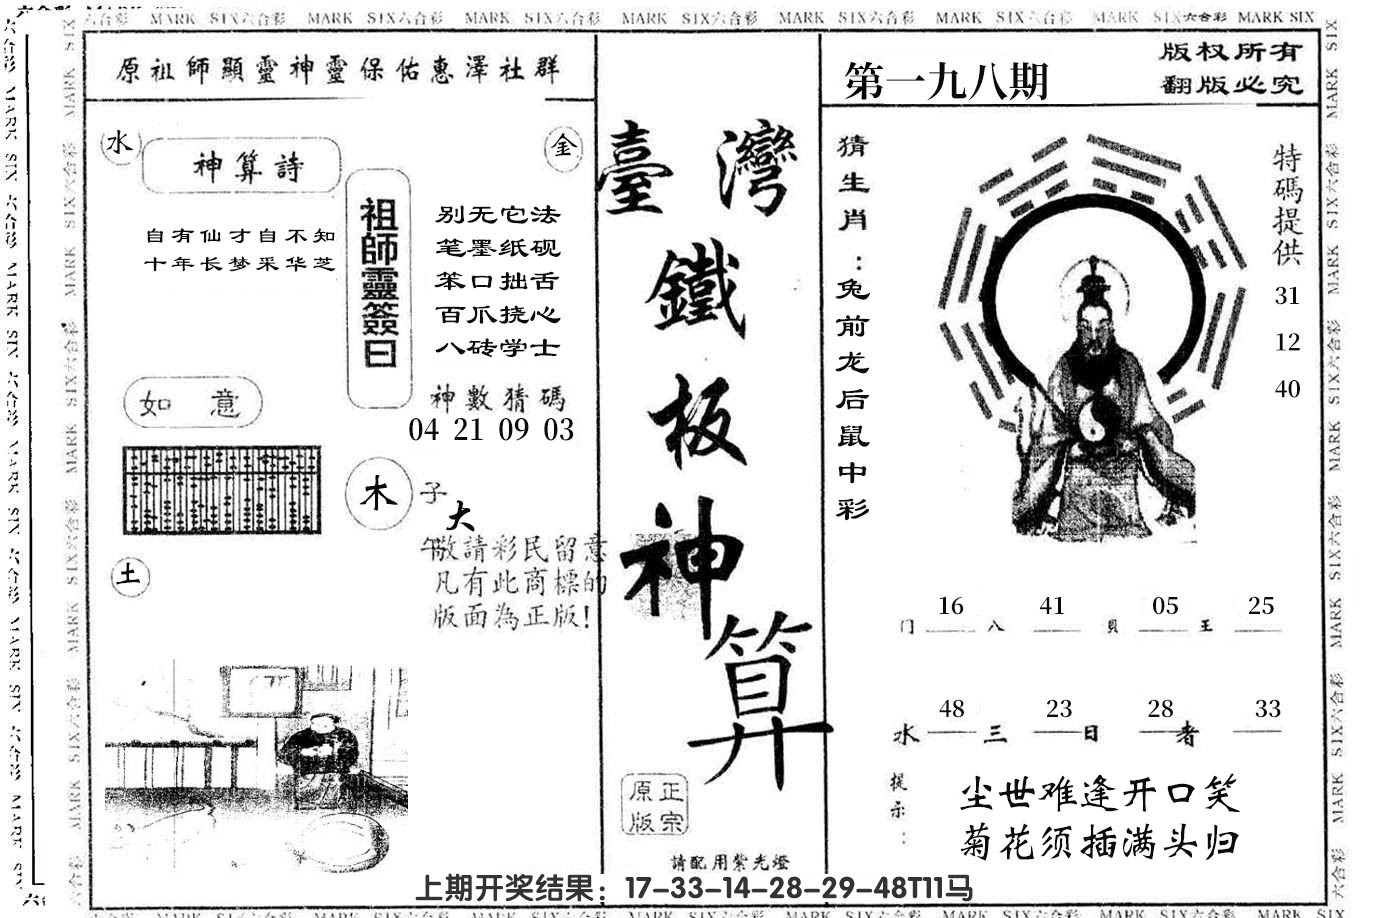 MARK SIX六合彩 MARK SIX六合彩 MARK SIX六合彩 MARK SIX六合彩 MARK SIX六合彩 MARK SIX六合彩 MARK SIX六合彩 MARK SIX
原祖師顯靈神靈保佑惠澤社群
水
神算詩
金
自有仙才自不知
十年长梦采华芝
祖師靈簽曰
别无它法
笔墨纸砚
笨口拙舌
百爪挠心
八砖学士
神數猜碼
04 21 09 03
如 意
木
子
大
午
敬請彩民留意
凡有此商標的
版面為正版!
土
臺灣
鐵
板
神
算
正宗
原版
請配用紫光燈
第一九八期
版权所有
翻版必究
猜生肖:兔前龙后鼠中彩
特碼提供
31
12
40
16 41 05 25
门 八 貝 王
48 23 28 33
水 三 日 者
提示:
尘世难逢开口笑
菊花须插满头归
上期开奖结果：17-33-14-28-29-48T11马